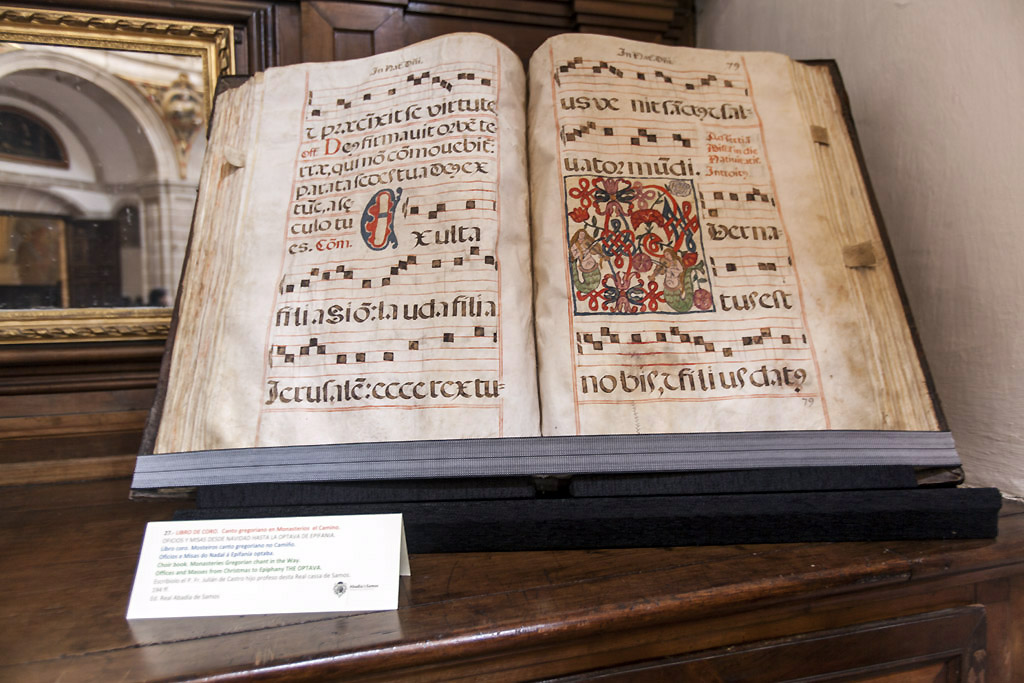 In Nat. Dñi.
τ præcĩxit se virtute
off. Deꝯ firmavit orbẽ te
rræ, qui nõ cõmovebit:
parata sedes tua deꝯ ex
tũc, a sę
culo tu
es. Cõm.
Exulta
filia Siõ: lauda filia
Jerusalẽ: ecce rex tu=
In Nat. Dñi. 79
us ve nit sãctꝯ τ sal=
uator mũdi.
Ver na=
tus est
nobis, τ filius datꝯ
79
27.- LIBRO DE CORO. Canto gregoriano en Monasterios el Camino.
OFICIOS Y MISAS DESDE NAVIDAD HASTA LA OPTAVA DE EPIFANIA.
Libro coro: Mosteiros canto gregoriano no Camiño.
Oficios e Misas do Nadal á Epifanía optaba.
Choir book. Monasteries Gregorian chant in the Way.
Offices and Masses from Christmas to Epiphany THE OPTAVA.
Escribiole el P. Fr. Julián de Castro hijo profeso desta Real cassa de Samos.
194 ff.
03. Real Abadía de Samos
Abadía de Samos